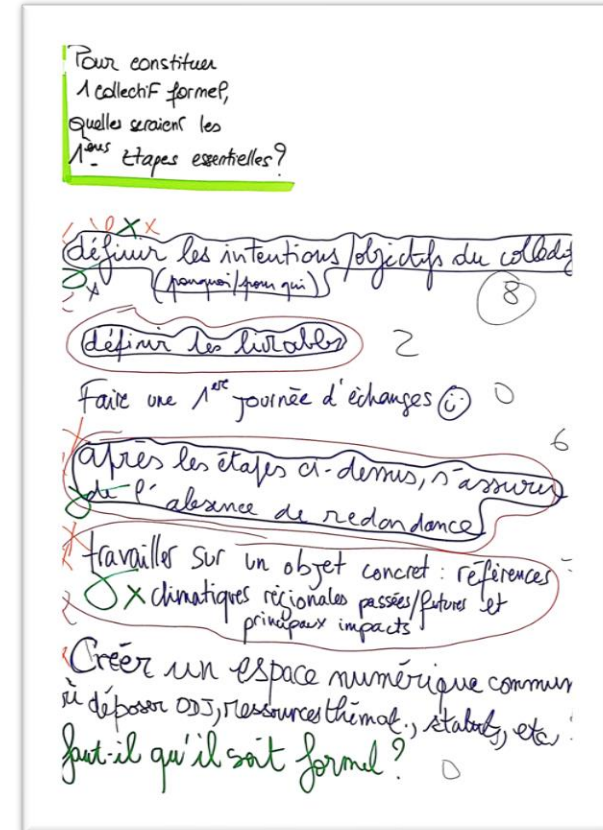 Pour constituer
1 collectif formel,
quelles seraient les
1ères étapes essentielles ?
définir les intentions/objectifs du collectif
(pourquoi/pour qui)
8
définir les livrables 2
Faire une 1ère journée d'échanges 0
6
après les étapes ci-dessus, s'assurer
de l'absence de redondance
travailler sur un objet concret : références
climatiques régionales passées/futures et
principaux impacts
Créer un espace numérique commun
où déposer ODJ, ressources thémat., statuts, etc.
faut-il qu'il soit formel ? 0